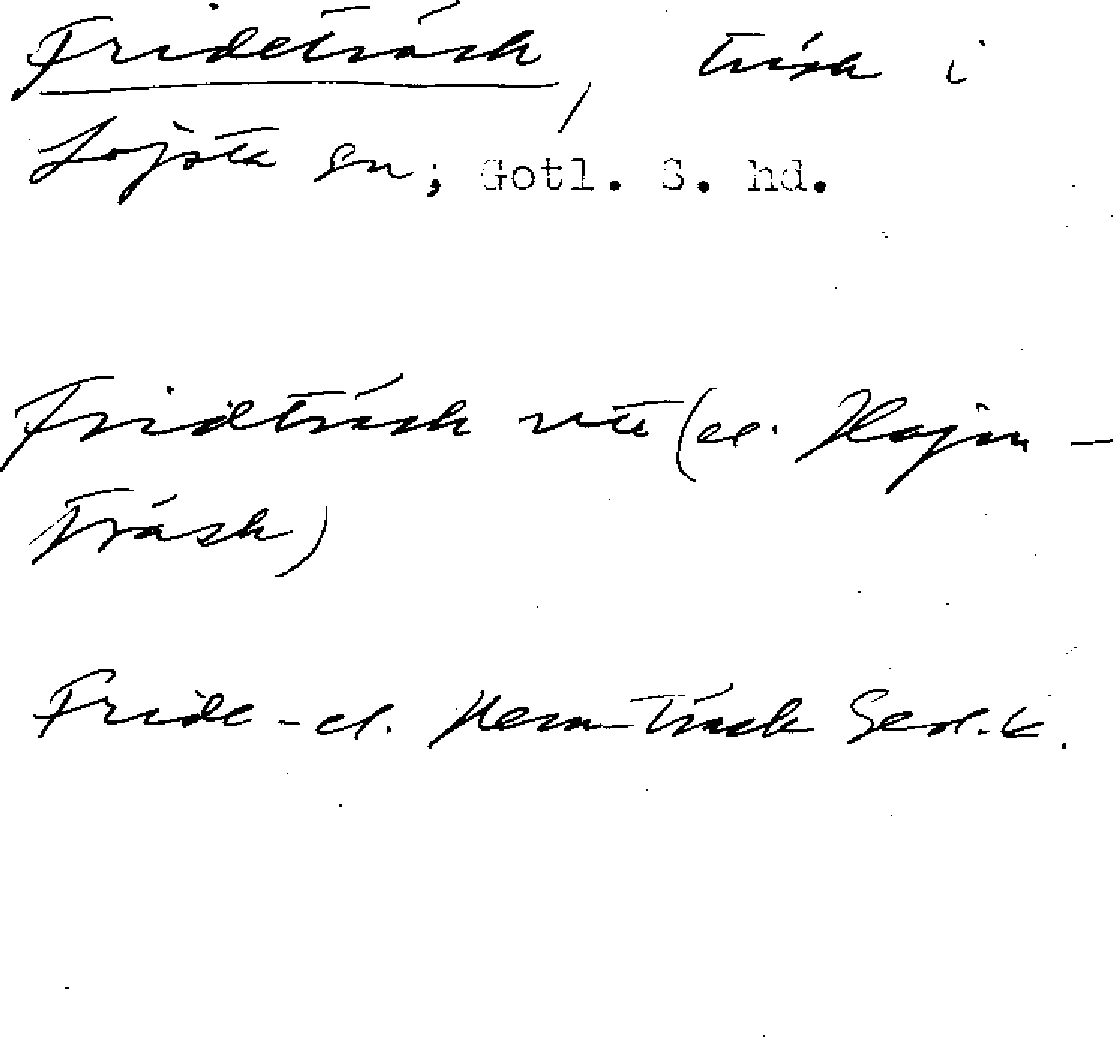 Frideträsk, träsk i
Lojsta sn; Gotl. S. hd.
Fridträsk (el. Hajm-
träsk)
Fride- el. Hem-träsk Geol.k.